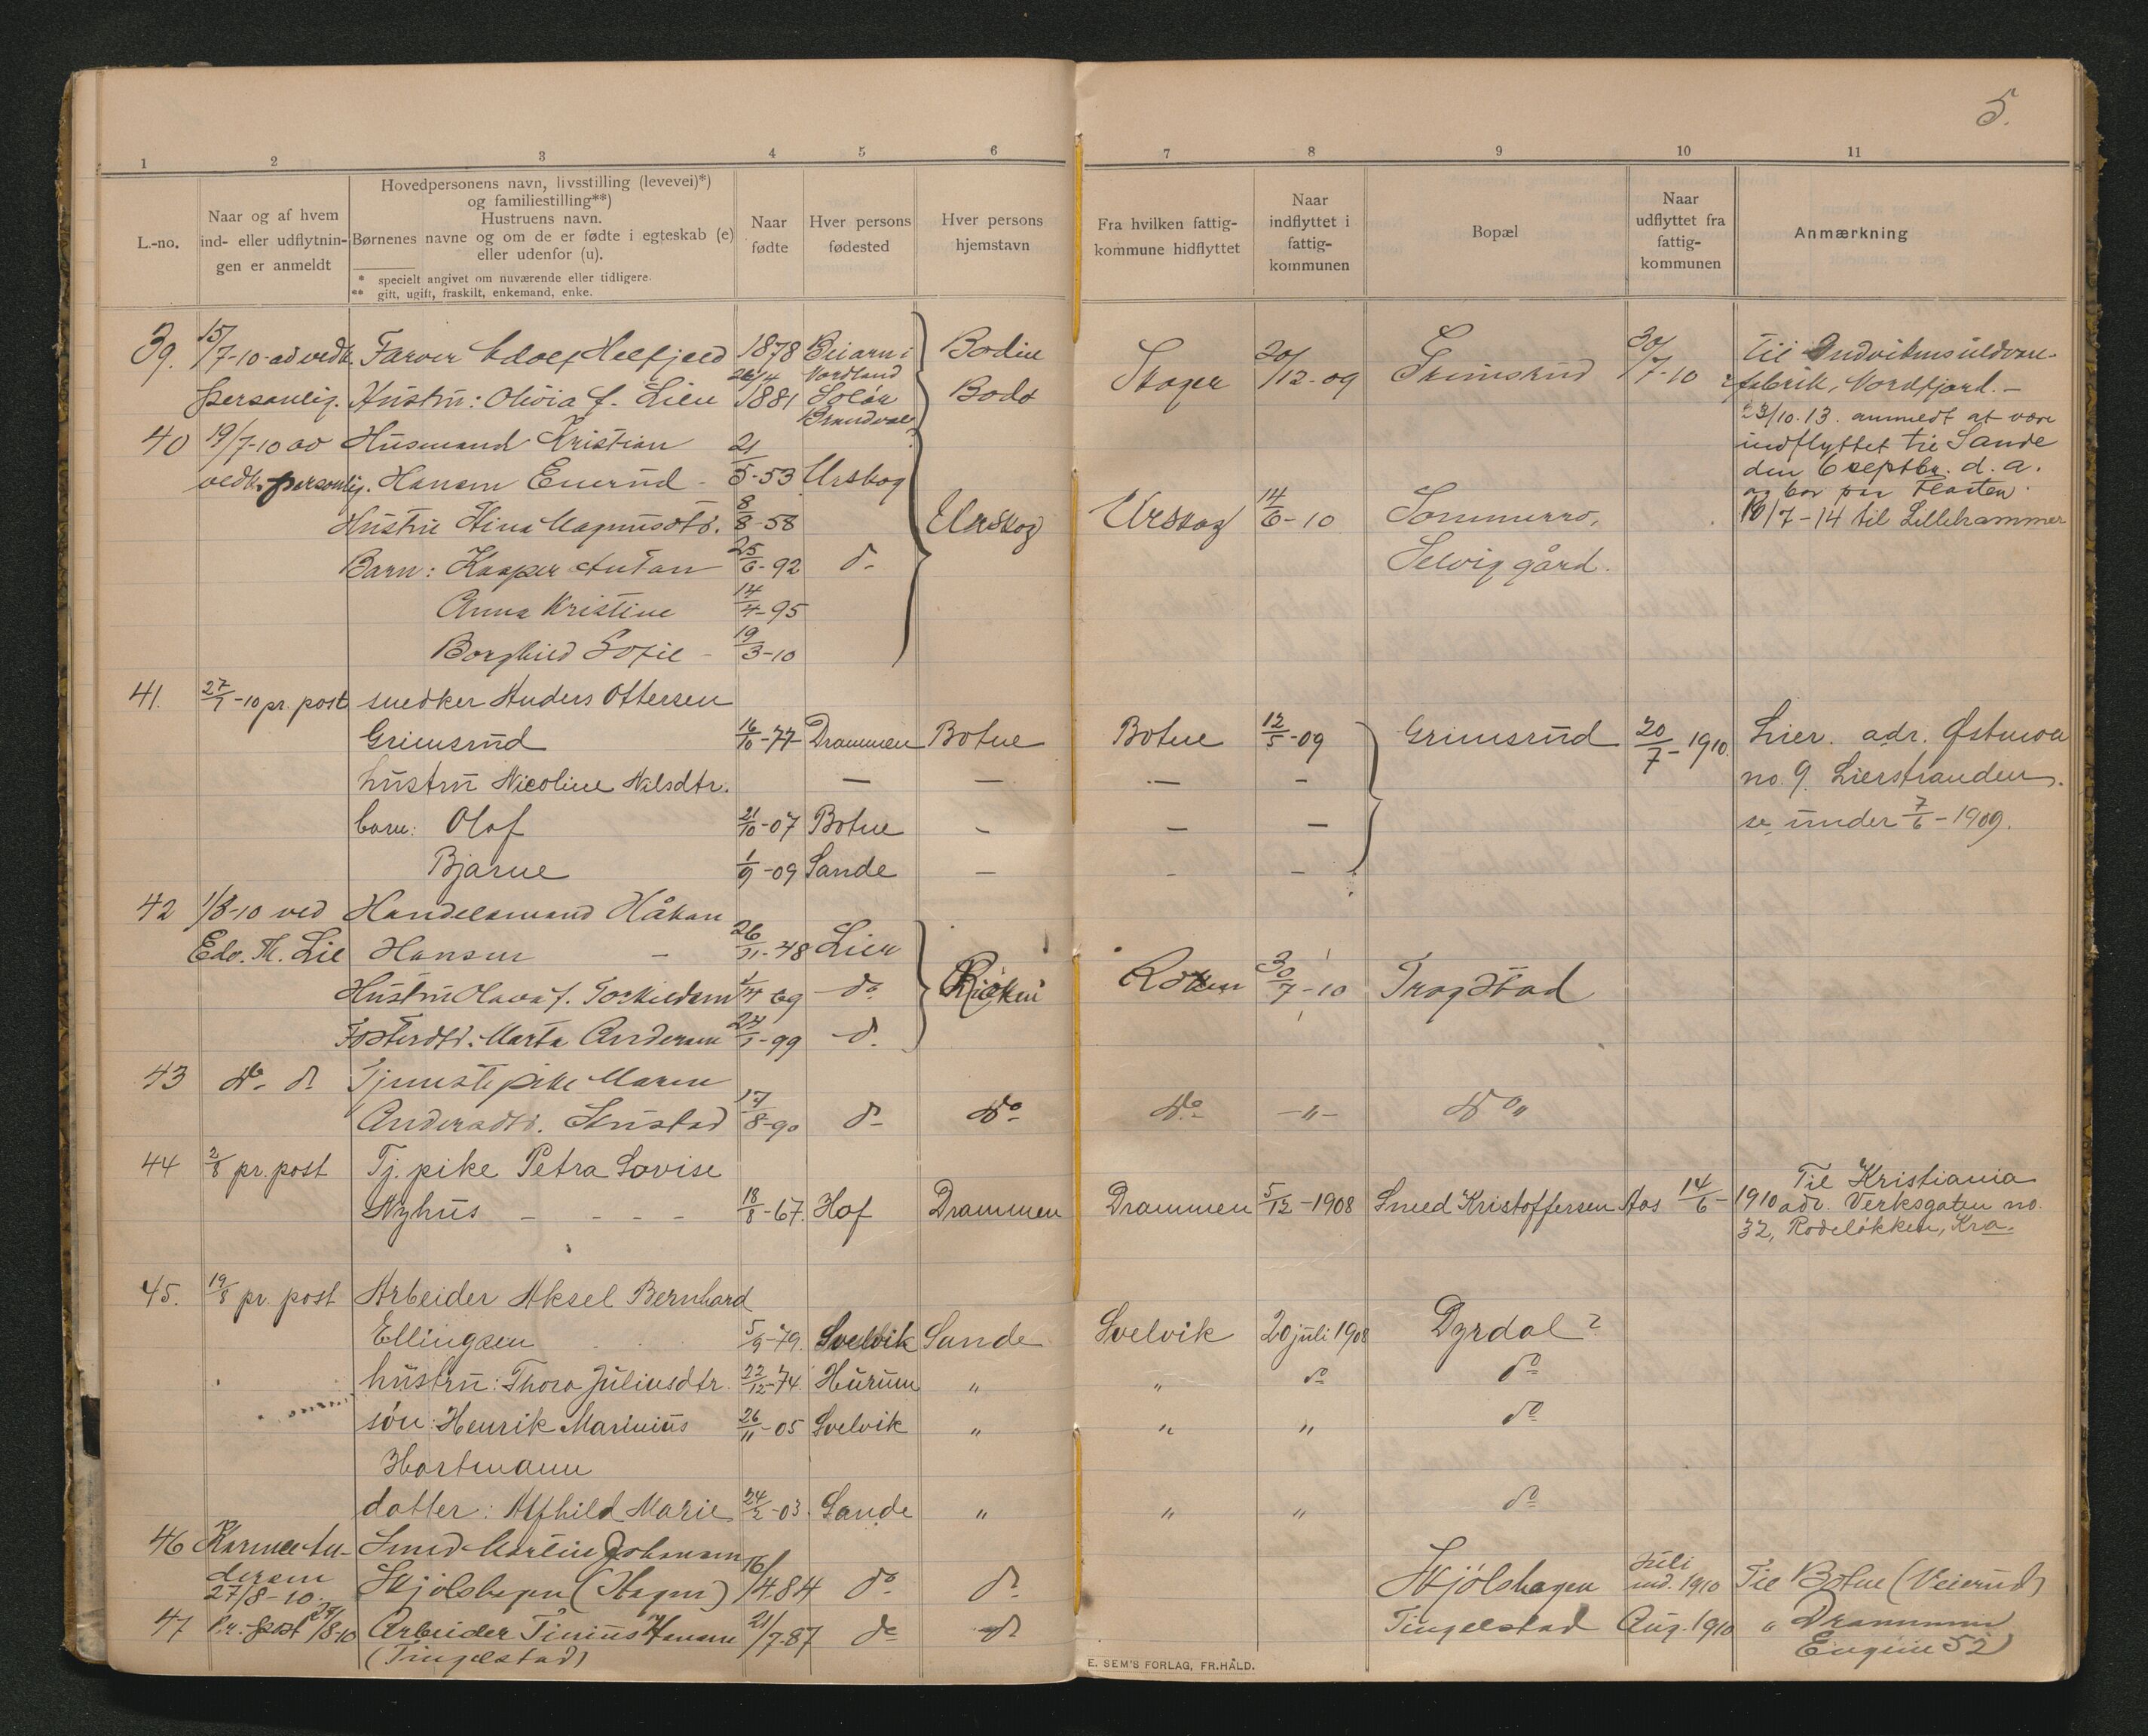 5.
1 2 3 4 5 6 7 8 9 10 11
L.-no.
Naar og af hvem
ind- eller udflytnin-
gen er anmeldt
Hovedpersonens navn, livsstilling (levevei)*)
og familiestilling**)
Hustruens navn.
Børnenes navne og om de er fødte i egteskab (e)
eller udenfor (u).
* specielt angivet om nuværende eller tidligere.
** gift, ugift, fraskilt, enkemand, enke.
Naar
fødte
Hver persons
fødested
Hver persons
hjemstavn
Fra hvilken fattig-
kommune hidflyttet
Naar
indflyttet i
fattig-
kommunen
Bopæl
Naar
udflyttet fra
fattig-
kommunen
Anmærkning
39. 15/7-10 av vedk. Farver Adolf Helfjeld 1878 Beiarn i Bodin Skoger 20/12-09 Grimsrud 30/7-10 Til Indvikens uldvare-
Nordland
personlig. Hustru: Olivia f. Lien 26/4 1881 Solør Bodø fabrik, Nordfjord.-
Brandval 23/10.13. anmeldt at være
40 19/7-10 av Husmand Kristian 21/5-53 Urskog indflyttet til Sande
vedk. personlig. Hansen Enerud - den 6 septbr. d. a.
og bor paa
Hustru Stina Magnusdtr. 8/8-58 Urskog Urskog 14/6-10 Sommerro, 16/7-14 til Lillehammer
Barn: Kasper Anton 25/6-92 do Selvig gård.
Anna Kristine 14/4-95
Borghild Sofie - 19/3-10
41. 27/7-10 pr. post snedker Anders Ottersen
Grimsrud 16/10-77 Drammen Botne Botne 12/5-09 Grimsrud 20/7-1910. Lier. adr. Østmoen
hustru Nicoline Nilsdtr. — — — - no. 9. Lierstranden.
barn: Olaf 21/10-07 Botne - - — se under 7/6-1909.
Bjarne 1/9-09 Sande — - -
42 1/8-10 ved Handelsmand Håkan
Edv. Th. Lie Hansen - 26/11-48 Lier Røken Røken 30/7-10 Trogstad
Hustru Olava f. Torkildsen 1/4 69 do
Fosterdtr. Marta Andersen 24/1-99 do
43 do do Tjenestepike Maren
Andersdtr. Stustad 17/8-90 do do do -"- do "
44 2/8 pr. post Tj. pike Petra Lovise Til Kristiania
Nyhus - - - - 18/8-67. Hof Drammen Drammen 5/12-1908 Smed Kristoffersen Aas 14/6-1910 adr. Verksgaten no.
32, Rodeløkken, Kra.
45. 19/8 pr. post Arbeider Aksel Bernhard
Ellingsen 5/9-79. Svelvik Sande Svelvik 20 juli 1908 Dyrdal ?
hustru: Thora Juliusdtr. 22/12-74. Hurum " " do do
søn: Henrik Marinius 26/11-05 Svelvik " " " do
Hartmann
datter: Alfhild Marie 24/2-03. Sande " " " do
46 An- Smed Martin Johansen
dersen Kjølshagen (Hagen) 16/4 84 do do Kjølshagen Juli md. 1910 Til Botne (Veierud)
27/8-10.
47 Pr. post 29/8-10 Arbeider Tinius Hansen 21/7-87 do do Tingelstad Aug. 1910 " Drammen
(Tingelstad) Engene 52)
E. SEM'S FORLAG, FR.HALD.